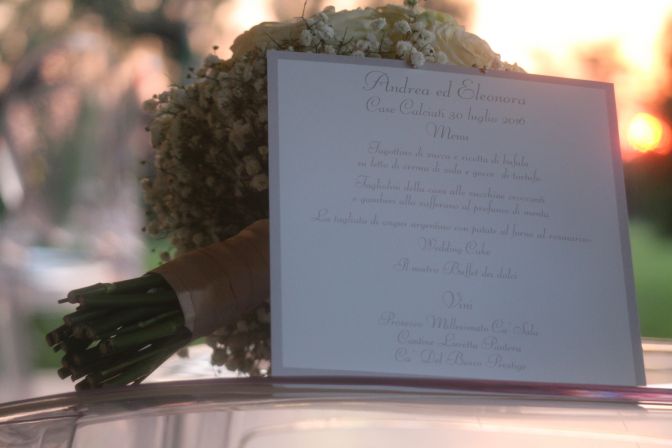 Andrea ed Eleonora
Case Calciati 30 luglio 2016
Menu
Fagottini di zucca e ricotta di bufala
su letto di crema di soia e gocce di tartufo
Tagliolini della casa alle zucchine croccanti
e guanciale allo zafferano al profumo di menta
La tagliata di angus argentino con patate al forno al rosmarino
Wedding Cake
Il nostro Buffet dei dolci
Vini
Prosecco Millesimato Ca' Sala
Cantine Loretto Pantera
Ca' Del Bosco Prestige